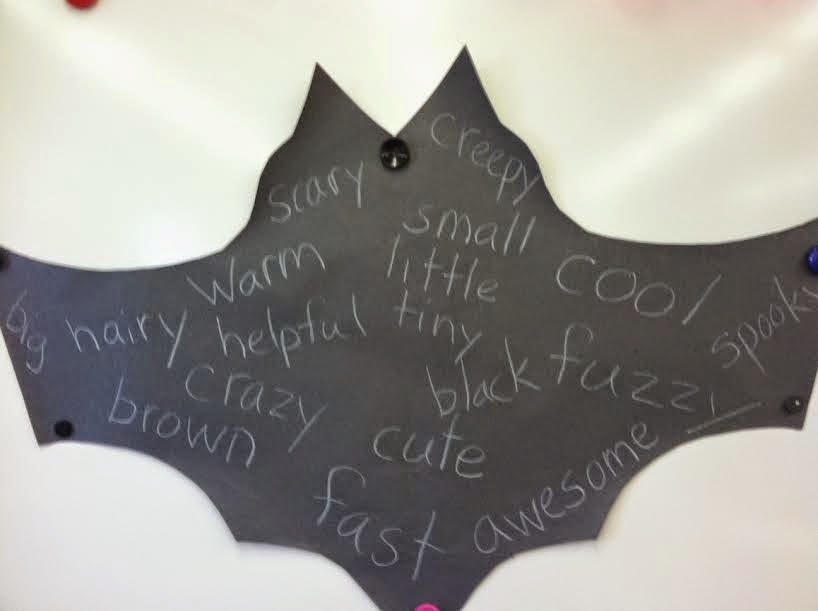 creepy
scary
small
warm
little
cool
big
hairy
helpful
tiny
spooky
crazy
black
fuzzy
brown
cute
fast
awesome